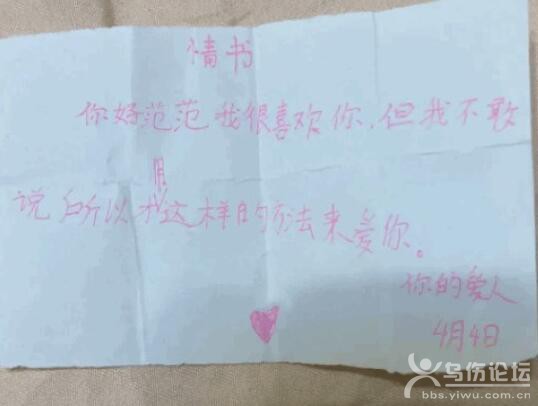 情书
你好范范我很喜欢你,但我不敢
用
说所以我这样的方法来爱你。
你的爱人
4月4日
乌伤论坛
bbs.yiwu.com.cn